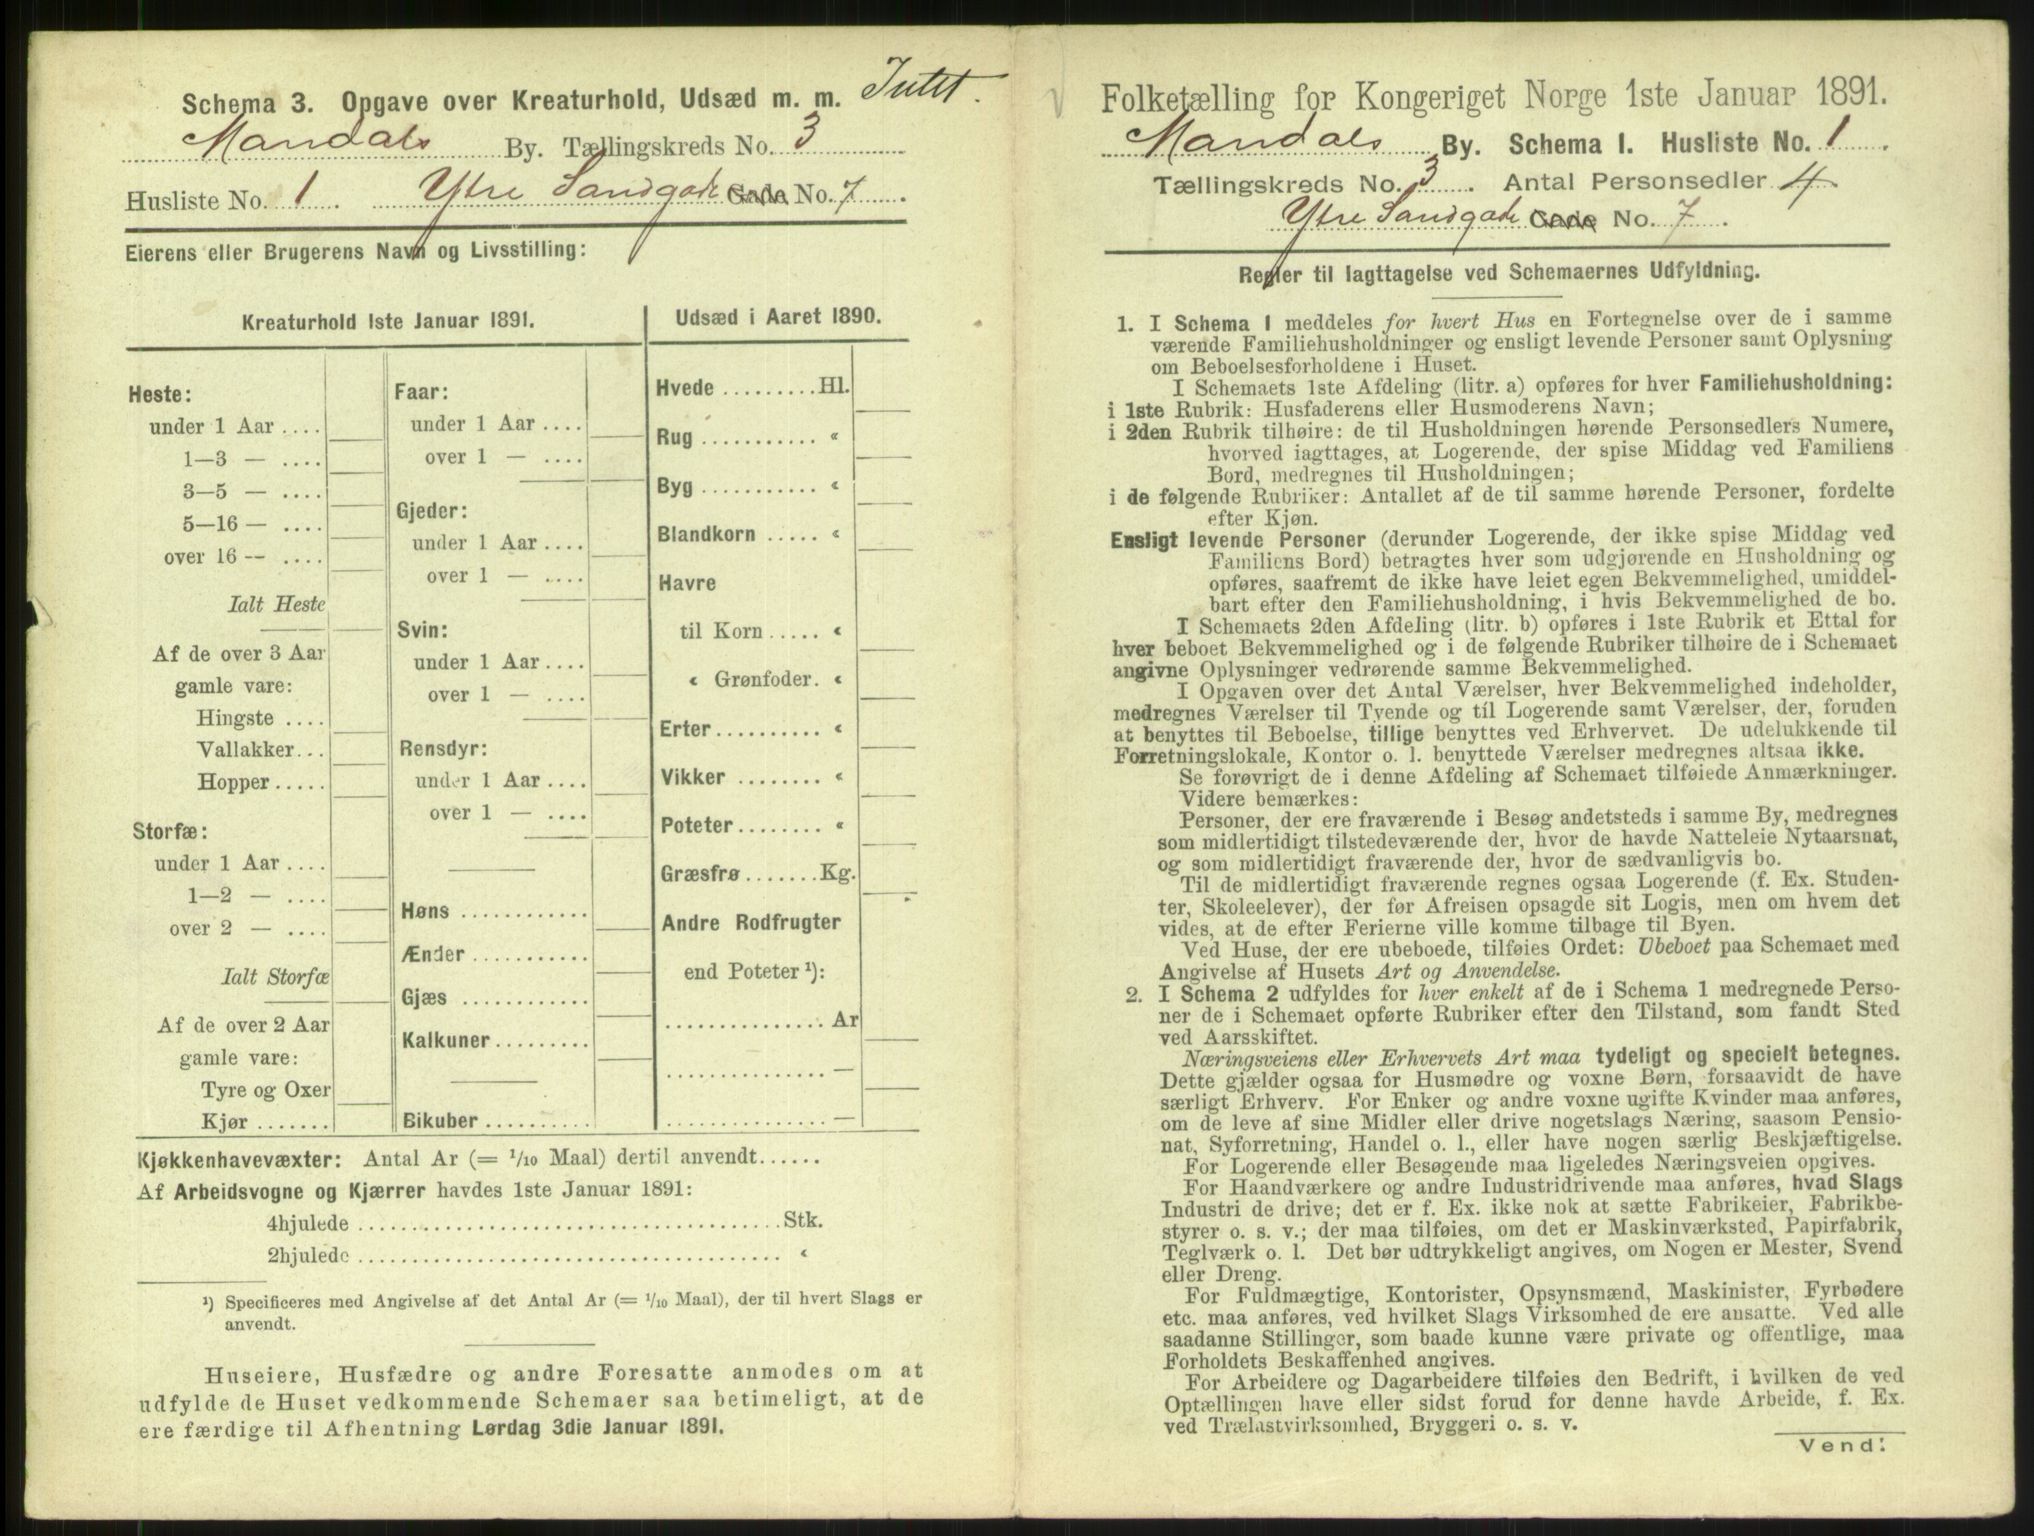 Schema 3. Opgave over Kreaturhold, Udsæd m. m. Intet.
Mandals By. Tællingskreds No. 3
Husliste No. 1. Ytre Sandgade Gade No. 7.
Eierens eller Brugerens Navn og Livsstilling:
Kreaturhold 1ste Januar 1891.
Heste:
under 1 Aar ....
1—3 — ....
3—5 — ....
5—16 — ....
over 16 — ....
Ialt Heste
Af de over 3 Aar
gamle vare:
Hingste ....
Vallakker...
Hopper.....
Storfæ:
under 1 Aar ....
1—2 — ....
over 2 — ....
Ialt Storfæ
Af de over 2 Aar
gamle vare:
Tyre og Oxer
Kjør .......
Faar:
under 1 Aar ....
over 1 — ....
Gjeder:
under 1 Aar ....
over 1 — ....
Svin:
under 1 Aar ....
over 1 — ....
Rensdyr:
under 1 Aar ....
over 1 — ....
Høns ............
Ænder ...........
Gjæs ............
Kalkuner.........
Bikuber ..........
Udsæd i Aaret 1890.
Hvede .........Hl.
Rug ........... «
Byg ........... «
Blandkorn ..... «
Havre
til Korn ..... «
« Grønfoder. «
Erter.......... «
Vikker ........ «
Poteter........ «
Græsfrø.......Kg.
Andre Rodfrugter
end Poteter ¹):
............... Ar
............... —
............... —
Kjøkkenhavevæxter: Antal Ar (= 1/10 Maal) dertil anvendt......
Af Arbeidsvogne og Kjærrer havdes 1ste Januar 1891:
4hjulede ........................................Stk.
2hjulede ........................................ «
¹) Specificeres med Angivelse af det Antal Ar (= 1/10 Maal), der til hvert Slags er
anvendt.
Huseiere, Husfædre og andre Foresatte anmodes om at
udfylde de Huset vedkommende Schemaer saa betimeligt, at de
ere færdige til Afhentning Lørdag 3die Januar 1891.
Folketælling for Kongeriget Norge 1ste Januar 1891.
Mandals By. Schema 1. Husliste No. 1.
Tællingskreds No. 3. Antal Personsedler 4.
Ytre Sandgade Gade No. 7.
Regler til Iagttagelse ved Schemaernes Udfyldning.
1. I Schema 1 meddeles for hvert Hus en Fortegnelse over de i samme
værende Familiehusholdninger og ensligt levende Personer samt Oplysning
om Beboelsesforholdene i Huset.
I Schemaets 1ste Afdeling (litr. a) opføres for hver Familiehusholdning:
i 1ste Rubrik: Husfaderens eller Husmoderens Navn;
i 2den Rubrik tilhøire: de til Husholdningen hørende Personsedlers Numere,
hvorved iagttages, at Logerende, der spise Middag ved Familiens
Bord, medregnes til Husholdningen;
i de følgende Rubriker: Antallet af de til samme hørende Personer, fordelte
efter Kjøn.
Ensligt levende Personer (derunder Logerende, der ikke spise Middag ved
Familiens Bord) betragtes hver som udgjørende en Husholdning og
opføres, saafremt de ikke have leiet egen Bekvemmelighed, umiddel-
bart efter den Familiehusholdning, i hvis Bekvemmelighed de bo.
I Schemaets 2den Afdeling (litr. b) opføres i 1ste Rubrik et Ettal for
hver beboet Bekvemmelighed og i de følgende Rubriker tilhøire de i Schemaet
angivne Oplysninger vedrørende samme Bekvemmelighed.
I Opgaven over det Antal Værelser, hver Bekvemmelighed indeholder,
medregnes Værelser til Tyende og til Logerende samt Værelser, der, foruden
at benyttes til Beboelse, tillige benyttes ved Erhvervet. De udelukkende til
Forretningslokale, Kontor o. l. benyttede Værelser medregnes altsaa ikke.
Se forøvrigt de i denne Afdeling af Schemaet tilføiede Anmærkninger.
Videre bemærkes:
Personer, der ere fraværende i Besøg andetsteds i samme By, medregnes
som midlertidigt tilstedeværende der, hvor de havde Natteleie Nytaarsnat,
og som midlertidigt fraværende der, hvor de sædvanligvis bo.
Til de midlertidigt fraværende regnes ogsaa Logerende (f. Ex. Studen-
ter, Skoleelever), der før Afreisen opsagde sit Logis, men om hvem det
vides, at de efter Ferierne ville komme tilbage til Byen.
Ved Huse, der ere ubeboede, tilføies Ordet: Ubeboet paa Schemaet med
Angivelse af Husets Art og Anvendelse.
2. I Schema 2 udfyldes for hver enkelt af de i Schema 1 medregnede Perso-
ner de i Schemaet opførte Rubriker efter den Tilstand, som fandt Sted
ved Aarsskiftet.
Næringsveiens eller Erhvervets Art maa tydeligt og specielt betegnes.
Dette gjælder ogsaa for Husmødre og voxne Børn, forsaavidt de have
særligt Erhverv. For Enker og andre voxne ugifte Kvinder maa anføres,
om de leve af sine Midler eller drive nogetslags Næring, saasom Pensio-
nat, Syforretning, Handel o. l., eller have nogen særlig Beskjæftigelse.
For Logerende eller Besøgende maa ligeledes Næringsveien opgives.
For Haandværkere og andre Industridrivende maa anføres, hvad Slags
Industri de drive; det er f. Ex. ikke nok at sætte Fabrikeier, Fabrikbe-
styrer o. s. v.; der maa tilføies, om det er Maskinværksted, Papirfabrik,
Teglværk o. l. Det bør udtrykkeligt angives, om Nogen er Mester, Svend
eller Dreng.
For Fuldmægtige, Kontorister, Opsynsmænd, Maskinister, Fyrbødere
etc. maa anføres, ved hvilket Slags Virksomhed de ere ansatte. Ved alle
saadanne Stillinger, som baade kunne være private og offentlige, maa
Forholdets Beskaffenhed angives.
For Arbeidere og Dagarbeidere tilføies den Bedrift, i hvilken de ved
Optællingen have eller sidst forud for denne havde Arbeide, f. Ex.
ved Trælastvirksomhed, Bryggeri o. s. v.
Vend!